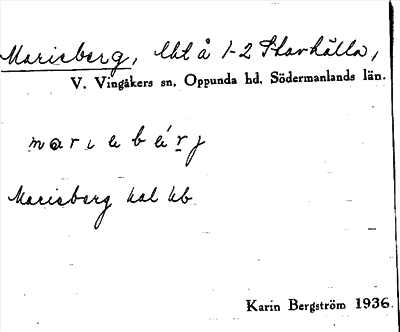 Marieberg, lht å 1-2 Skarhälla,
V. Vingåkers sn, Oppunda hd. Södermanlands län.
Marieberg kal hb
Karin Bergström 1936